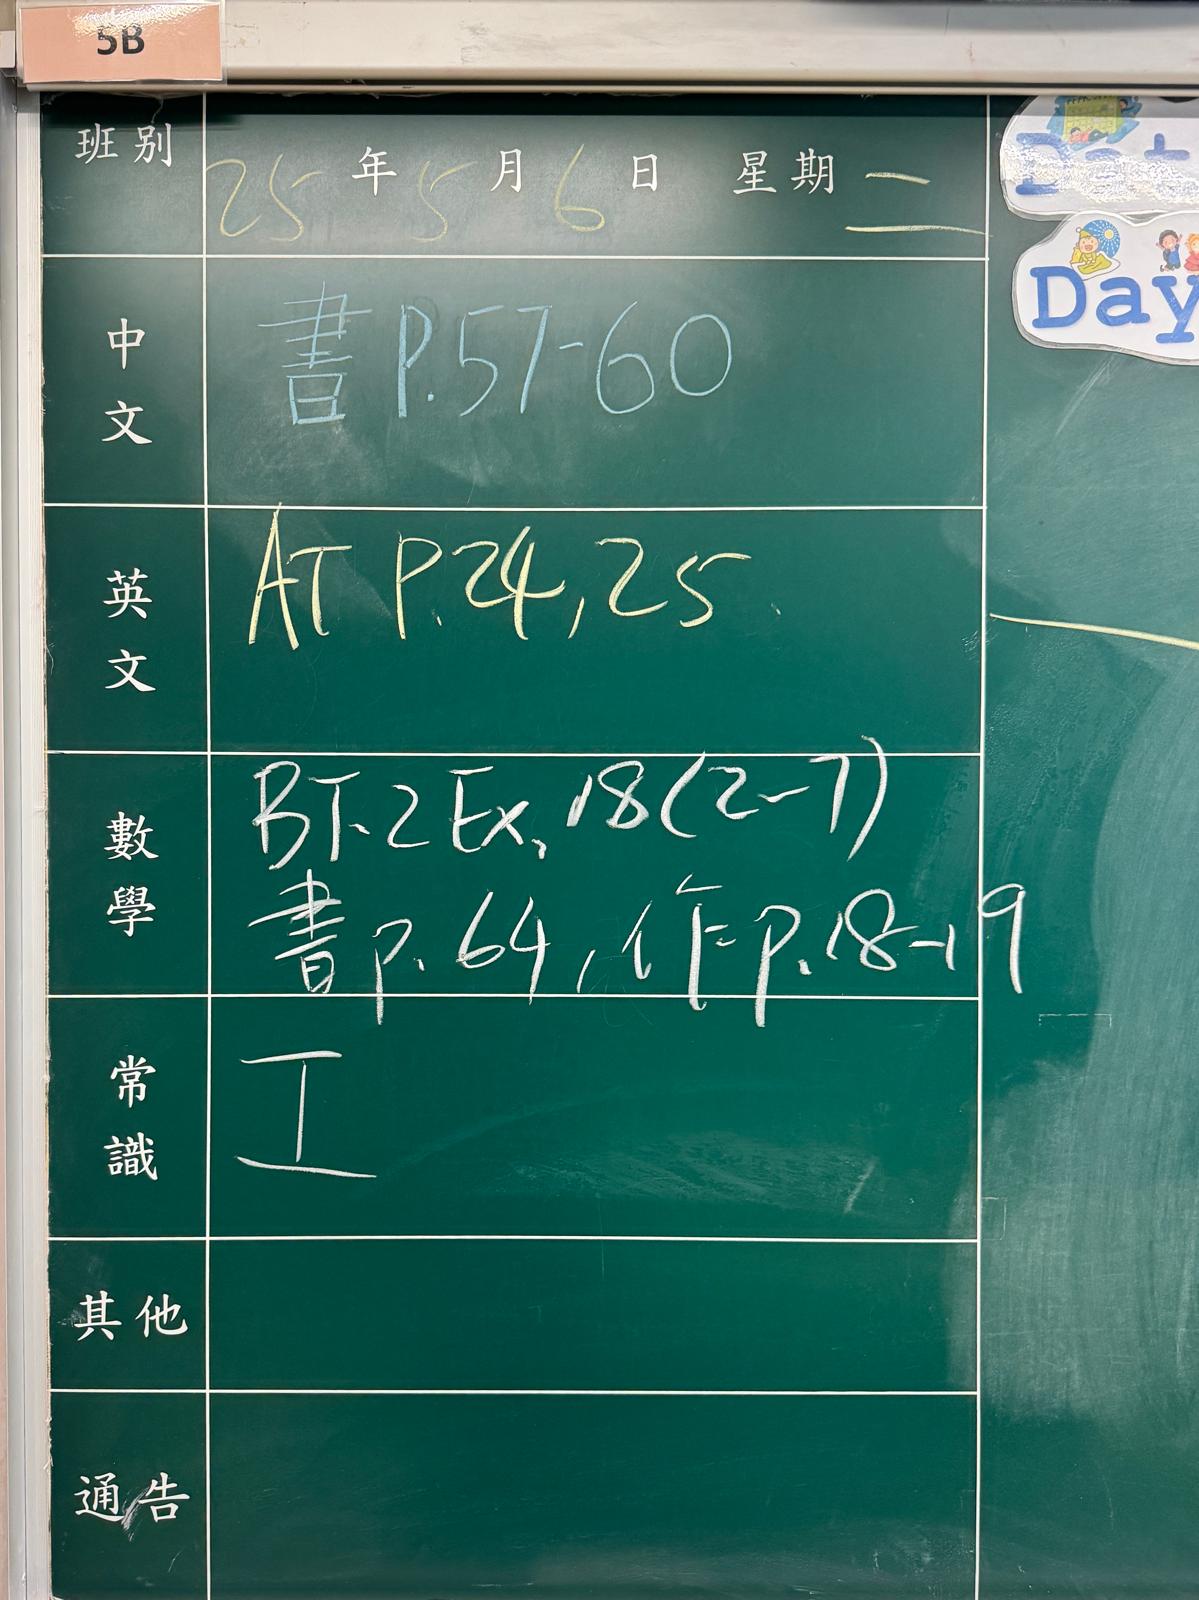 5B
班別
25年5月6日 星期二
中文
書 P.57-60
英文
AT P.24,25.
數學
BT.2 Ex.18(2-7)
書 p.64,作 p.18-19
常識
工
其他
通告
Day